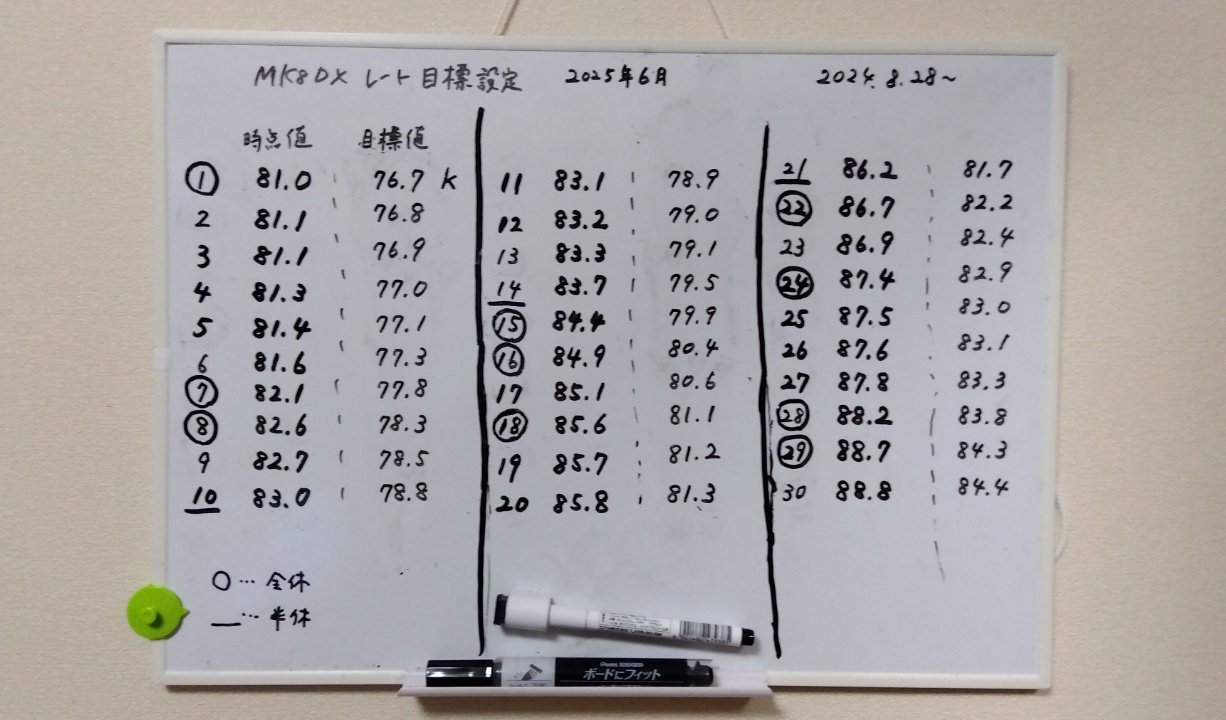 MK8DX レート目標設定 2025年6月 2024.8.28~
時点値 目標値
1 81.0 76.7 K
2 81.1 76.8
3 81.1 76.9
4 81.3 77.0
5 81.4 77.1
6 81.6 77.3
7 82.1 77.8
8 82.6 78.3
9 82.7 78.5
10 83.0 78.8
○…全休
_…半休
11 83.1 78.9
12 83.2 79.0
13 83.3 79.1
14 83.7 79.5
15 84.4 79.9
16 84.9 80.4
17 85.1 80.6
18 85.6 81.1
19 85.7 81.2
20 85.8 81.3
21 86.2 81.7
22 86.7 82.2
23 86.9 82.4
24 87.4 82.9
25 87.5 83.0
26 87.6 83.1
27 87.8 83.3
28 88.2 83.8
29 88.7 84.3
30 88.8 84.4
ボードにフィット